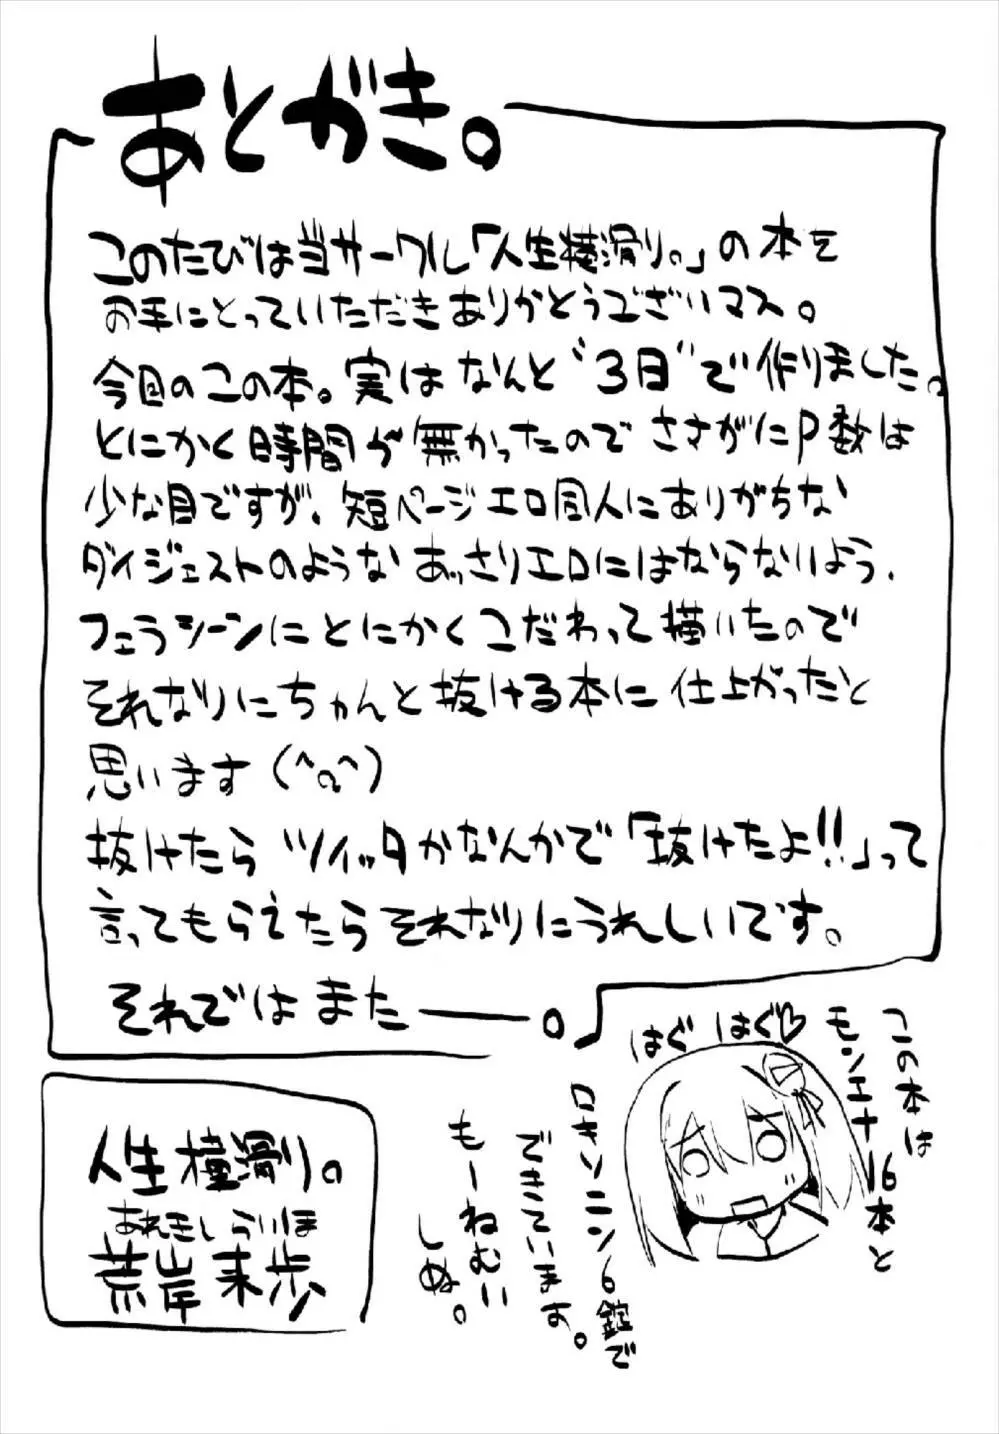 あとがき。
このたびは当サークル「人生横滑り。」の本を
お手にとっていただきありがとうございマス。
今回のこの本。実はなんと"3日"で作りました。
とにかく時間が無かったのでさすがにP数は
少な目ですが、短ページエロ同人にありがちな
ダイジェストのようなあっさりエロにはならないよう、
フェラシーンにとにかくこだわって描いたので
それなりにちゃんと抜ける本に仕上がったと
思います(^q^)
抜けたらツイッタかなんかで「抜けたよ!!」って
言ってもらえたらそれなりにうれしいです。
それではまた――。
はぐはぐ♡
この本は
モンエナ16本と
ロキソニン6錠で
できています。
もーねむい
しぬ。
人生横滑り。
あれきしらいほ
荒岸来歩